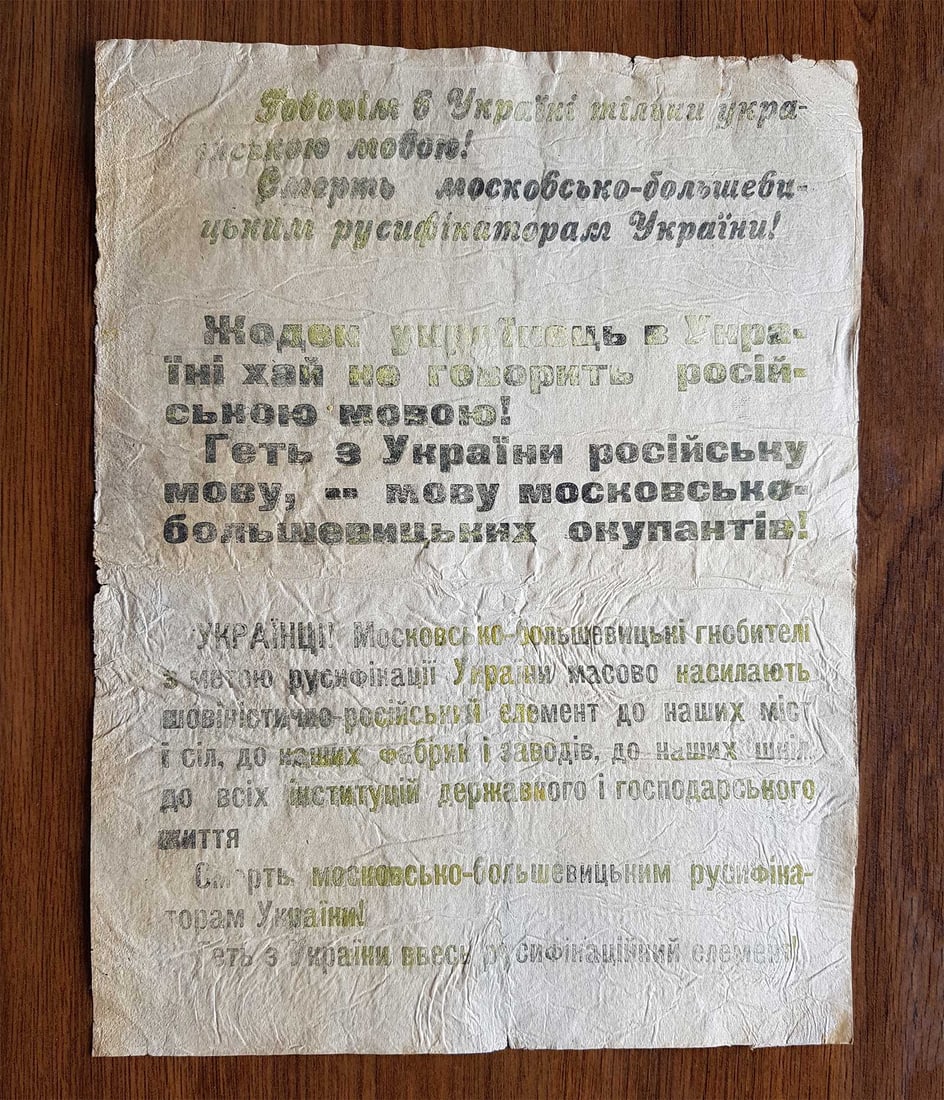 Говорім в Україні тільки укра-
їнською мовою!
Смерть московсько-большеви-
цьким русифікаторам України!
Жоден українець в Укра-
їні хай не говорить росій-
ською мовою!
Геть з України російську
мову, -- мову московсько-
большевицьких окупантів!
УКРАЇНЦІ! Московсько-большевицькі гнобителі
з метою русифікації України масово насилають
шовіністично-російський елемент до наших міст
і сіл, до наших фабрик і заводів, до наших шкіл,
до всіх інституцій державного і господарського
життя
Смерть московсько-большевицьким русифіка-
торам України!
Геть з України ввесь русифікаційний елемент!